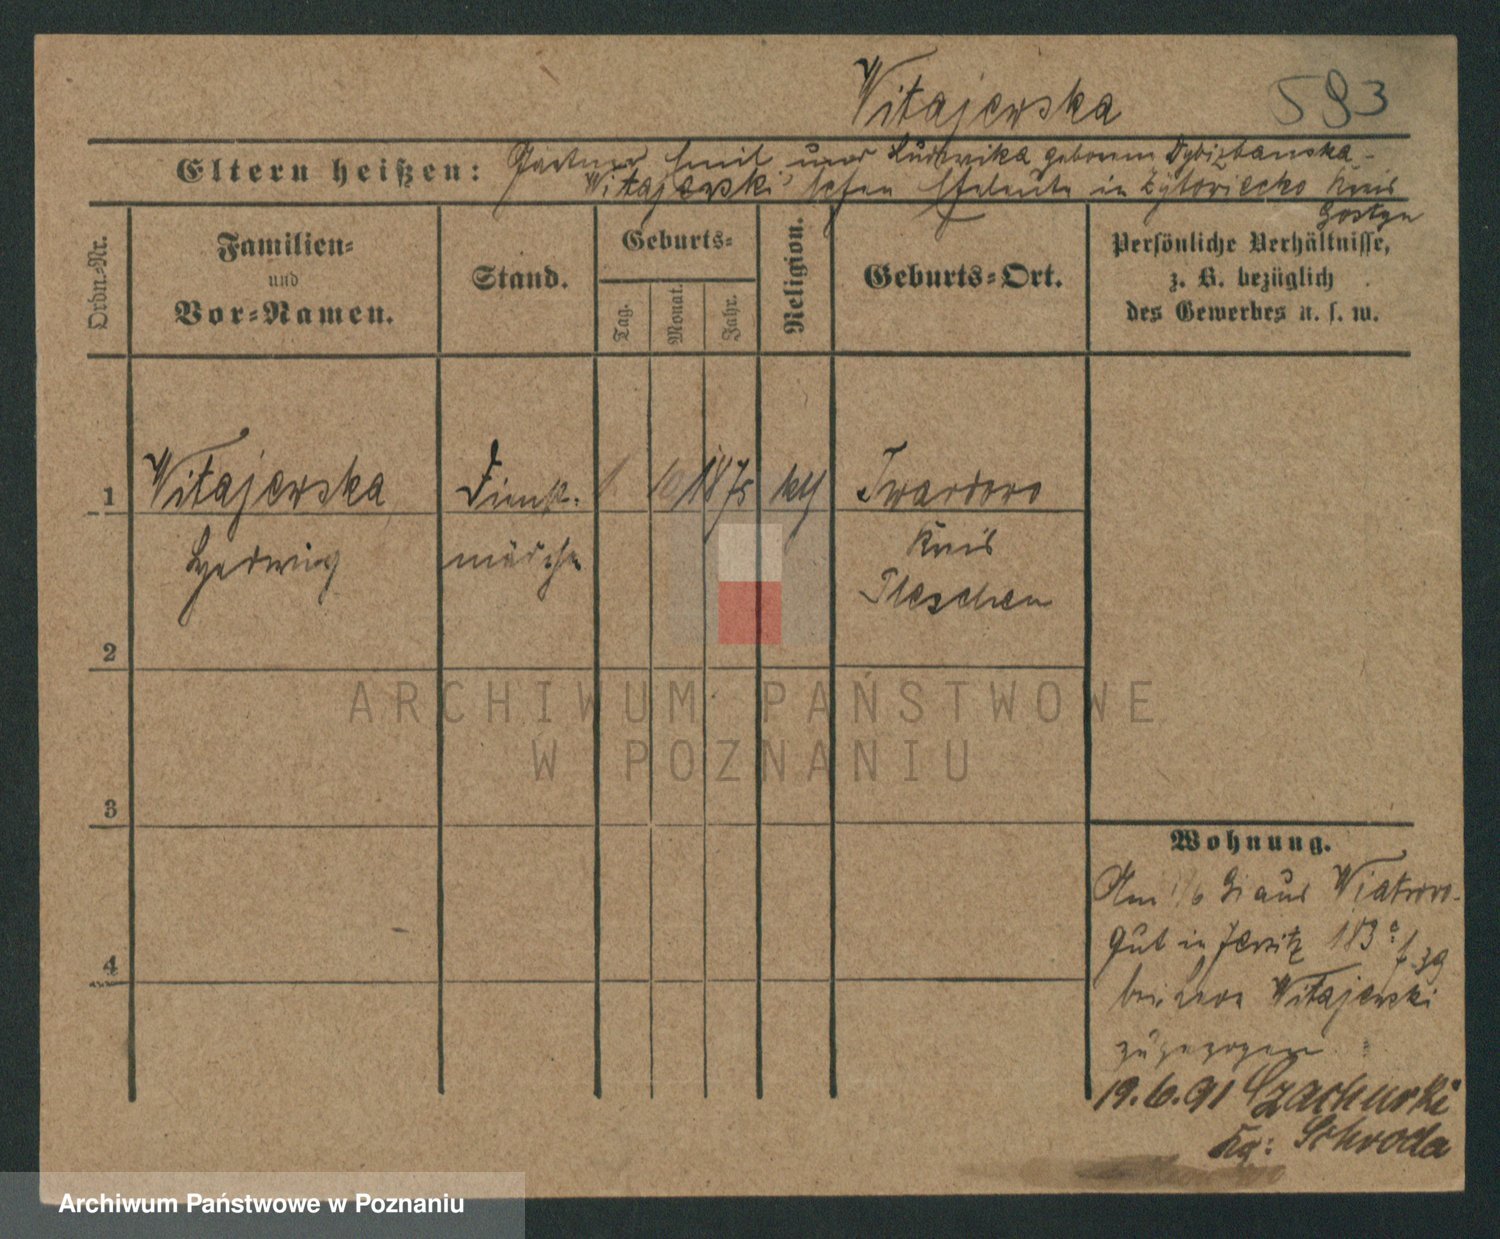 Witajewska
593
Eltern heißen: Gärtner Emil und Ludwika geborene Dybizbanska-
Witajewski'schen Eheleute in Zytowiecko Kreis
Gostyn
Ordn.-Nr.
Familien-
und
Vor-Namen.
Stand.
Geburts-
Tag.
Monat.
Jahr.
Religion.
Geburts-Ort.
Persönliche Verhältnisse,
z. B. bezüglich
des Gewerbes u. s. w.
1 Witajewska Dienst- 1. 10 1875 kth Twardowo
Hedwig mädchen Kreis
Pleschen
2
3
4
Wohnung.
Am 1/6 91 aus Wiatrowo-
Gut in Jersitz 183a
bei Witajewski
zugezogen
19.6.91 Czachurski
Kr: Schroda
ARCHIWUM PAŃSTWOWE
W POZNANIU
Archiwum Państwowe w Poznaniu